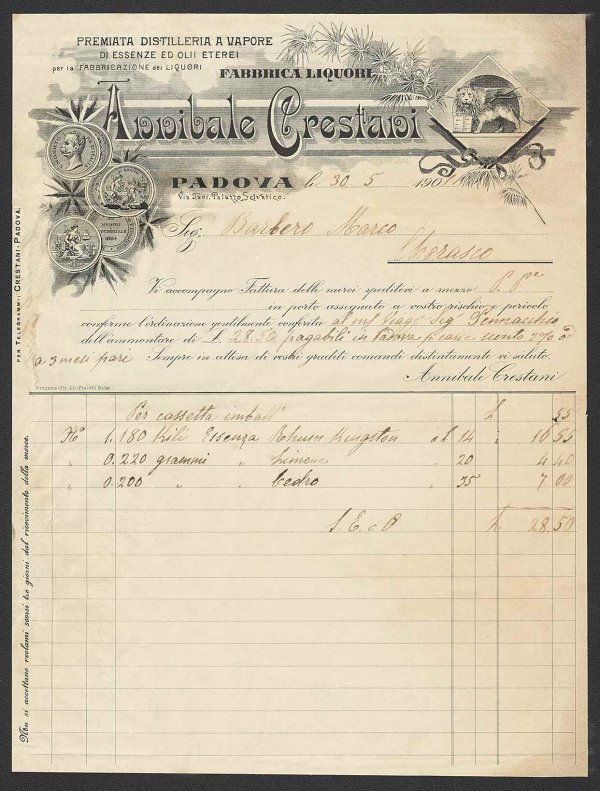 PREMIATA DISTILLERIA A VAPORE
DI ESSENZE ED OLII ETEREI
per la FABBRICAZIONE dei LIQUORI
FABBRICA LIQUORI
Annibale Crestani
PADOVA li 30. 5 190
Via Jadr. Palazzo Selvatico.
Sig. Barbero Marco
Cherasco
Vi accompagno Fattura delle merci speditevi a mezzo
in porto assegnato a vostro rischio e pericolo
conforme l'ordinazione gentilmente conferita al Sig. Pennacchio
dell'ammontare di L. 28.50 pagabili in Padova sconto 2%
a 3 mesi pari Sempre in attesa di vostri graditi comandi distintamente vi saluto.
Annibale Crestani
PER TELEGRAMMI: CRESTANI-PADOVA
Non si accettano reclami scorsi tre giorni dal ricevimento della merce.
Per cassetta imball° L 55
N° 1.180 Kili Essenza Rhum Kingston al 14 " 16 55
" 0.220 grammi " Limone " 20 4.40
" 0.200 " " Cedro " 35 7.00
S. E. e O L 28.50